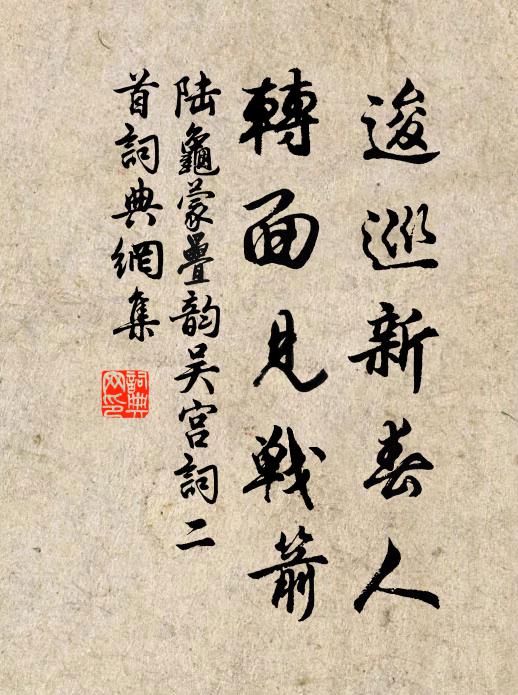 逡巡新春人
轉面見戰箭
陆龜蒙疊韵吴宫詞二
首詞典網集
詞典網印